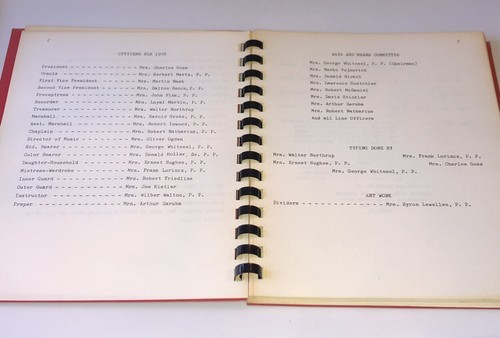 OFFICERS FOR 1978
President - Mrs. Charles Goss
Oracle - Mrs. Herbert Metts, P. P.
First Vice President - Mrs. Martin Meek
Second Vice President - Mrs. Dalton P. P.
Preceptress - Mrs. John Fink, P. P.
Recorder - Mrs. Loyal Martin, P. P.
Treasurer - Mrs. Walter Northrop
Marshall - Mrs. Harold Gross, P. P.
Asst. Marshall - Mrs. Robert P. P.
Chaplain - Mrs. Robert Matherius, P. P.
Director of Music - Mrs. Oliver Ogden
Std. Bearer - Mrs. George Whitesel, P. P.
Color Bearer - Mrs. Donald Sr. P. P.
Daughter-Household - Mrs. Ernest Hughes, P. P.
Mistress-Wardrobe - Mrs. Frank Lorincz, P. P.
Inner Guard - Mrs. Robert Friedline
Outer Guard - Mrs. Joe Kistler
Instructor - Mrs. Wilbur Walton, P. P.
Prager - Mrs. Arthur Saruba
WAYS AND MEANS COMMITTEE
Mrs. George Whitesel, P. P. (Chairman)
Mrs.
Mrs. Donald Nickel
Mrs. Lawrence
Mrs. Robert McDaniel
Mrs. Daris Stickler
Mrs. Arthur Saruba
Mrs. Robert Matherius
And all Line Officers
TYPING DONE BY
Mrs. Walter Northrop Mrs. Frank Lorincz, P. P.
Mrs. Ernest Hughes, P. P. Mrs. Charles Goss
Mrs. George Whitesel, P. P.
ART WORK
Dividers - Mrs. Byron Lewellen, P. P.